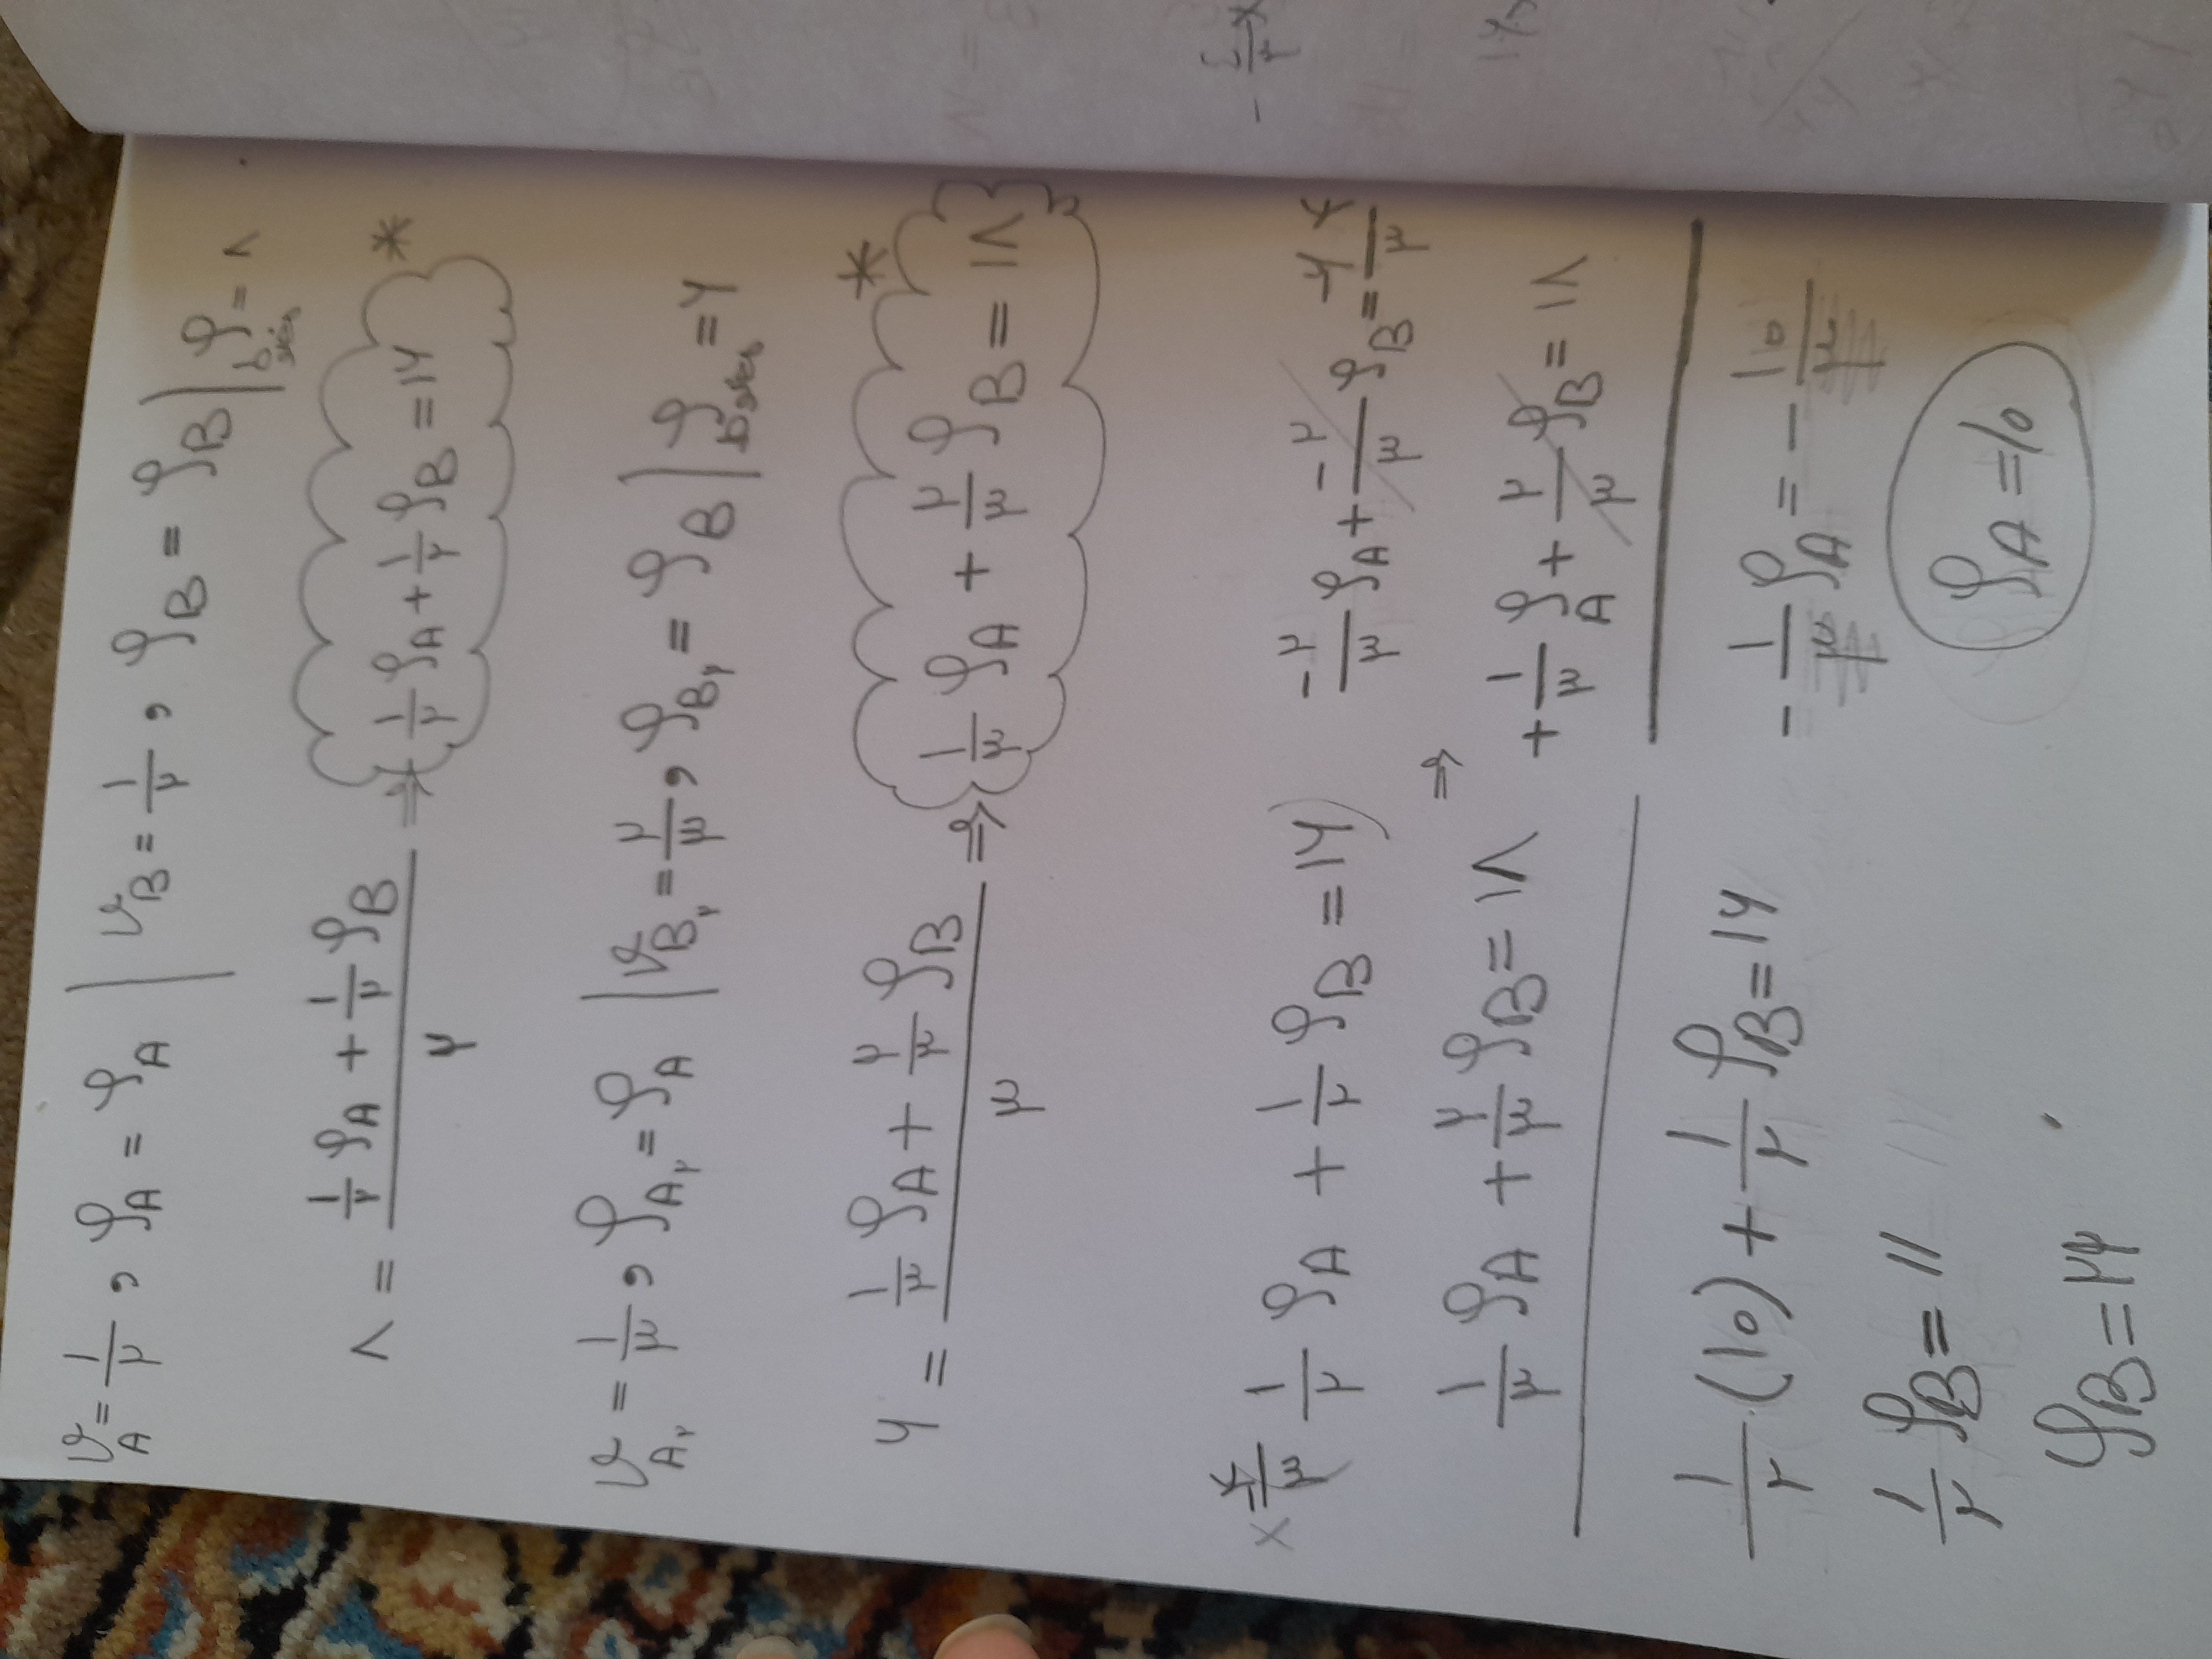 V_A = ۱/۲ , ρ_A = ρ_A | V_B = ۱/۲ , ρ_B = ρ_B | ρ_مخلوط = ۸
۸ = (۱/۲ ρ_A + ۱/۲ ρ_B)/۲ ⇒ ۱/۲ ρ_A + ۱/۲ ρ_B = ۱۶ *
V_A۲ = ۱/۳ , ρ_A۲ = ρ_A | V_B۲ = ۲/۳ , ρ_B۲ = ρ_B | ρ_مخلوط = ۶
۶ = (۱/۳ ρ_A + ۲/۳ ρ_B)/۳ ⇒ ۱/۳ ρ_A + ۲/۳ ρ_B = ۱۸ *
×-۴/۳ ۱/۲ ρ_A + ۱/۲ ρ_B = ۱۶) -۲/۳ ρ_A + -۲/۳ ρ_B = -۶۴/۳
۱/۳ ρ_A + ۲/۳ ρ_B = ۱۸ ⇒ +۱/۳ ρ_A + ۲/۳ ρ_B = ۱۸
۱/۲ (۱۰) + ۱/۲ ρ_B = ۱۶
-۱/۳ ρ_A = -۱۰/۳
۱/۲ ρ_B = ۱۱
ρ_A = ۱۰
ρ_B = ۲۲